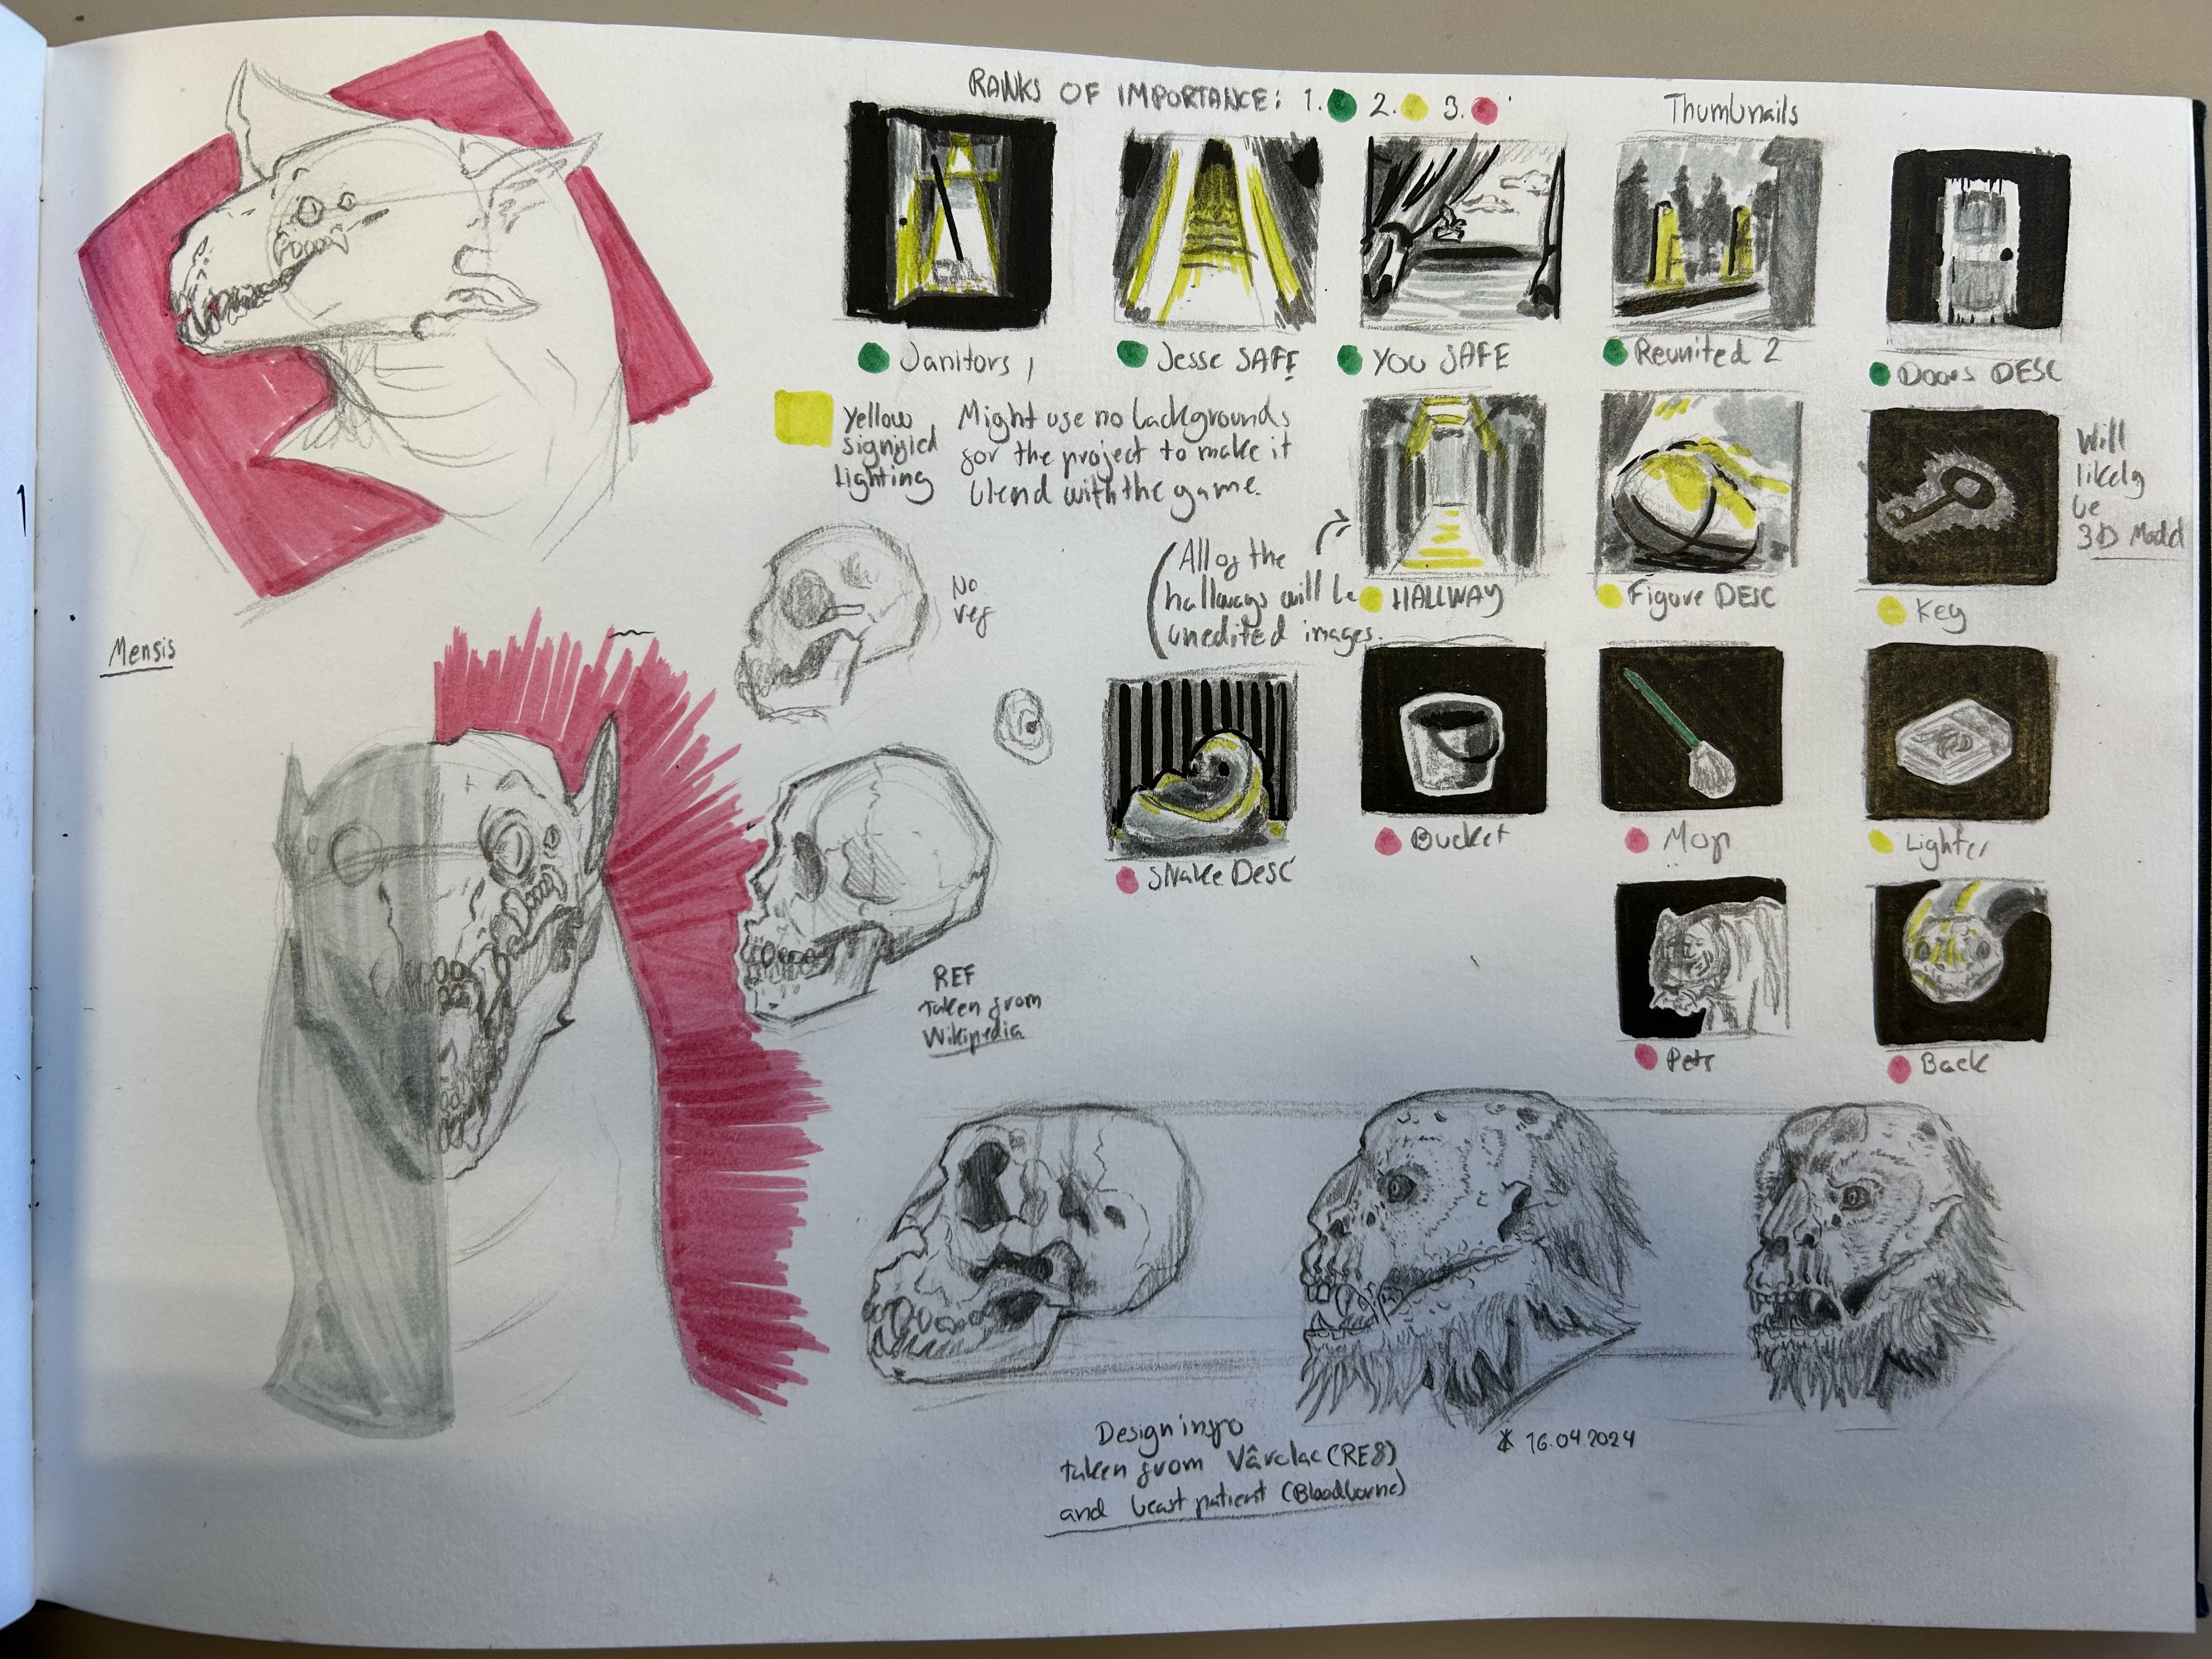 RANKS OF IMPORTANCE: 1. 2. 3.
Thumbnails
Janitors 1
Jesse SAFE
YOU SAFE
Reunited 2
Doors DESC
Yellow
signified
lighting
Might use no backgrounds
for the project to make it
blend with the game.
(All of the
hallways will be
unedited images.
HALLWAY
Figure DESC
Key
Will
likely
be
3D Model
No
ref
Mensis
Snake Desc
Bucket
Mop
Lighter
REF
taken from
Wikipedia
Pets
Back
Design info
taken from Vârcolac (RE8)
and beast patient (Bloodborne)
16.04.2024
1